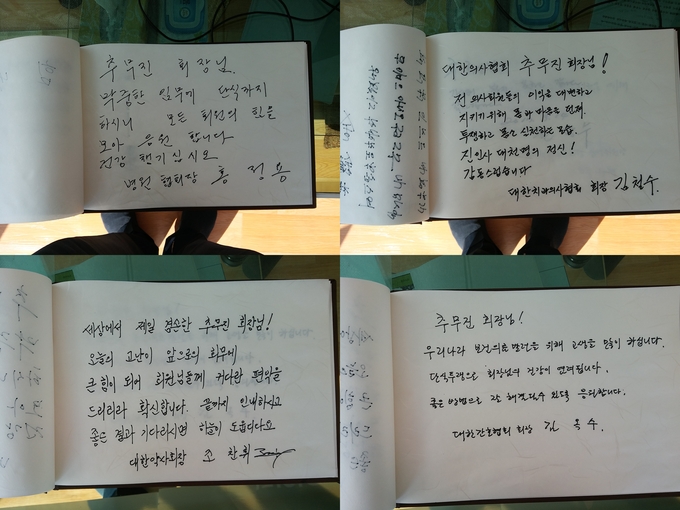 추무진 회장님.
막중한 임무에 단식까지
하시니 모든 회원의 힘을
모아 응원 합니다
건강 챙기십시오
병원협회장 홍 정 용
대한의사협회 추무진 회장님!
전 의사회원들의 이익을 대변하고
지키기 위해 몸과 마음을 던져
투쟁하고 몸소 실천하는 모습.
진인사 대천명의 정신!
감동스럽습니다
대한치과의사협회 회장 김철수.
세상에서 제일 겸손한 추무진 회장님!
오늘의 고난이 앞으로의 회무에
큰 힘이 되어 회원님들께 커다란 편익을
드리리라 확신합니다. 끝까지 인내하시고
좋은 결과 기다리시면 하늘이 도웁니다요
대한약사회장 조 찬 휘
추무진 회장님!
우리나라 보건의료발전을 위해 고생을 많이 하십니다.
단식투쟁으로 회장님의 건강이 염려됩니다.
좋은 방법으로 잘 해결될수 있도록 응원합니다.
대한간호협회 회장 김 옥 수.